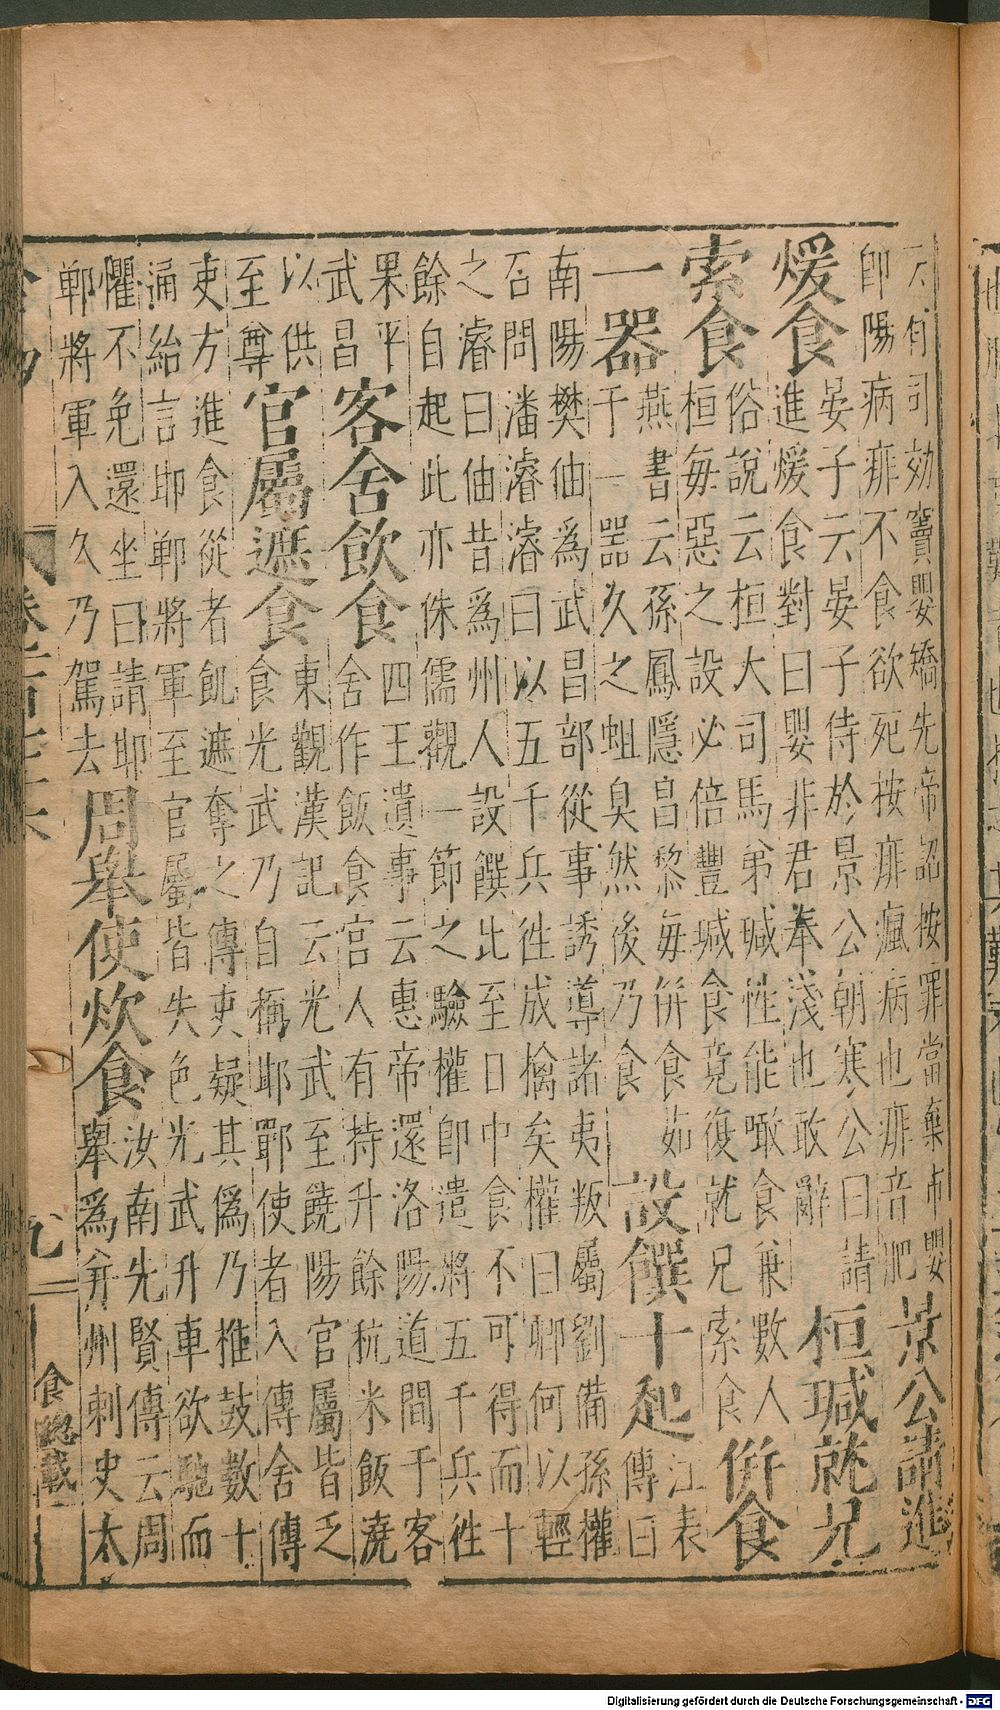 有司劾竇嬰矯先帝詔按罪當棄市嬰
即陽病痱不食欲死按痱瘋病也痱音肥
景公請進
煖食
晏子云晏子侍於景公朝寒公曰請
進煖食對曰嬰非君奉淺也敢辭
桓瑊就兄
索食
俗說云桓大司馬弟瑊性能噉食兼數人
桓每惡之設必倍豐瑊食竟復就兄索食
併食
一器
燕書云孫鳳隱昌黎每併食茹
于一器久之蛆臭然後乃食
設饌十起
江表
傳曰
南陽樊伷為武昌部從事誘導諸夷叛屬劉備孫權
召問潘濬濬曰以五千兵徃成擒矣權曰卿何以輕
之濬曰伷昔為州人設饌比至日中食不可得而十
餘自起此亦侏儒觀一節之驗權即遣將五千兵徃
果平
武昌
客舍飲食
四王遺事云惠帝還洛陽道間于客
舍作飯食宮人有持升餘秔米飯澆
以供
至尊
官屬遮食
東觀漢記云光武至饒陽官屬皆乏
食光武乃自稱耶鄲使者入傳舍傳
吏方進食從者飢遮奪之傳吏疑其偽乃椎鼓數十
通紿言耶鄲將軍至官屬皆失色光武升車欲馳而
懼不免還坐曰請耶
鄲將軍入久乃駕去
周舉使炊食
汝南先賢傳云周
舉為并州刺史太
九
食總載
Digitalisierung gefördert durch die Deutsche Forschungsgemeinschaft - DFG